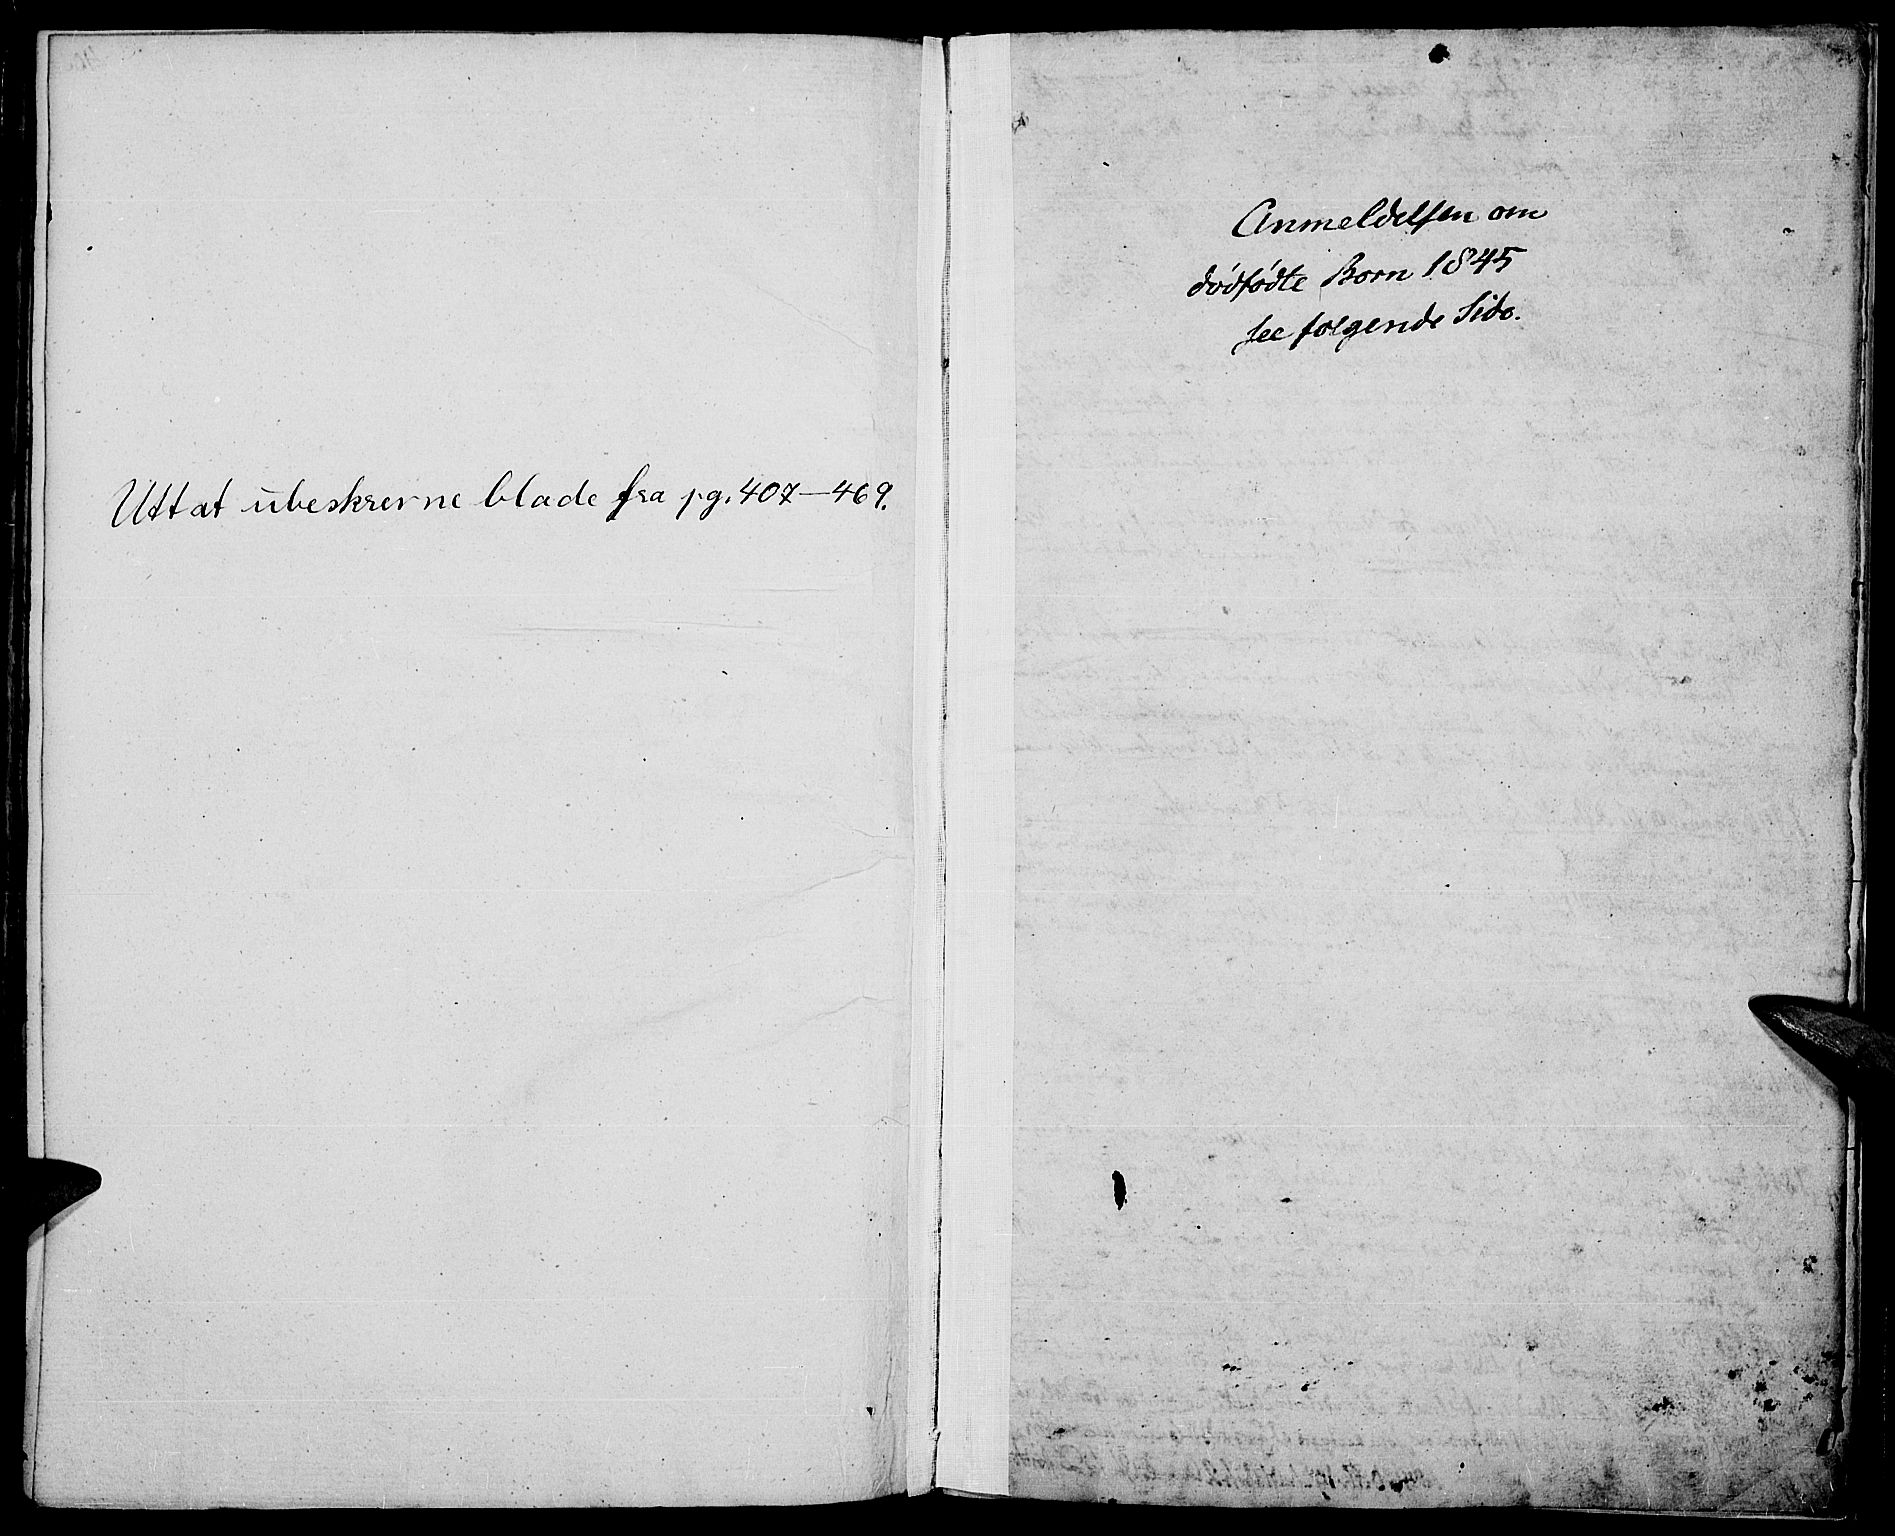 Uttat ubeskrevne blade fra pg. 407—469.
Anmeldelsen om
dødfødte Born 1845
see følgende Side.